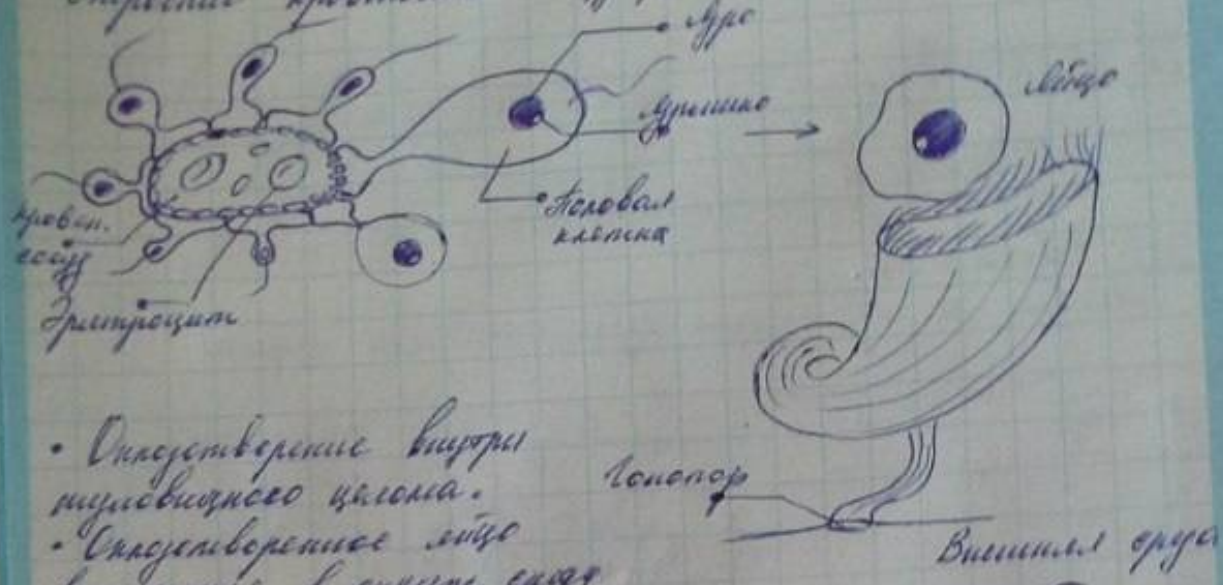 Ядро
Ядрышко
Яйцо
Половая
клетка
кровен.
сосуд
Эритроцит
• Оплодотворение внутри
туловищного целома.
• Оплодотворенное яйцо
Гонопор
Внешняя среда